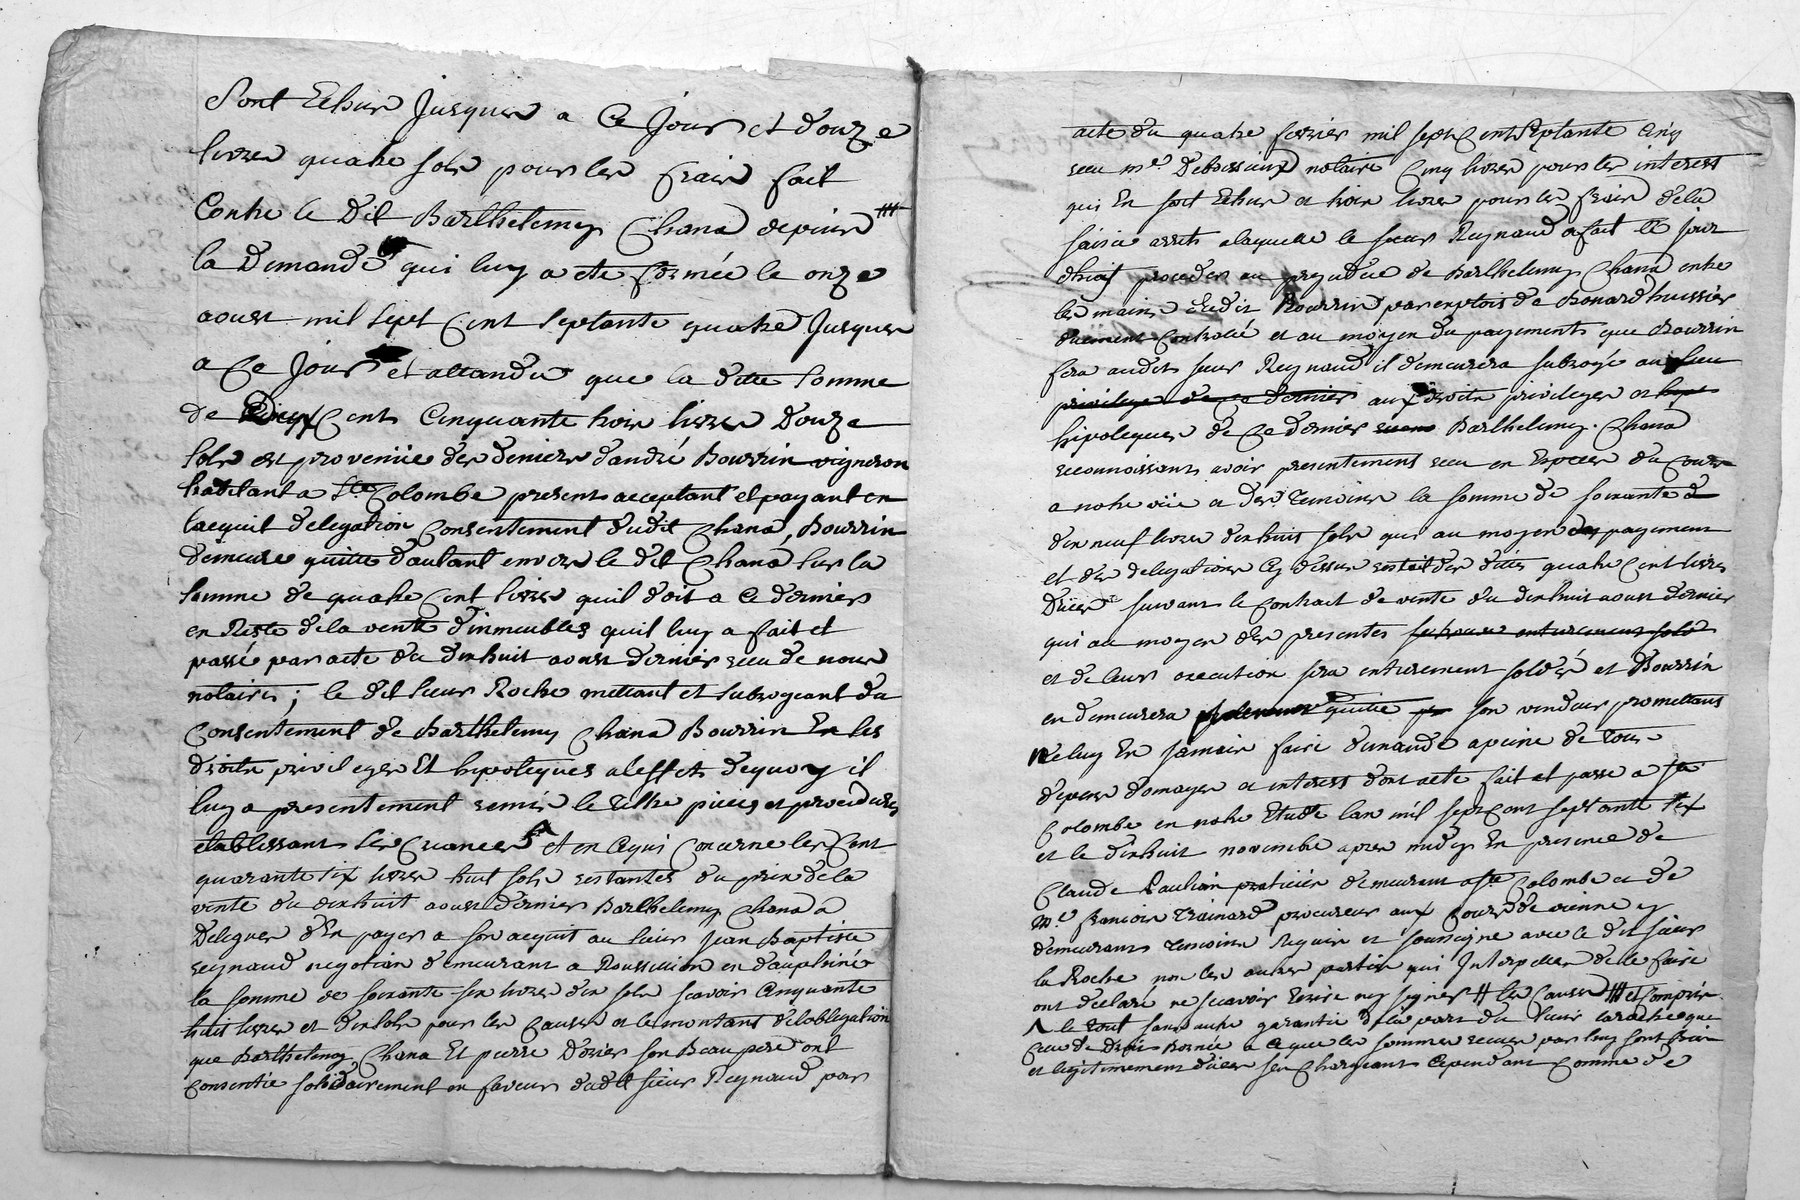 Sont Echus Jusques a Ce Jour et douze
livres quatre sols pour les frais fait
Contre le Dit Barthelemy Chana depuis #
la Demande qui luy a ete formée le onze
aoust mil sept Cent septante quatre Jusques
a Ce Jour et attandu que la ditte somme
de Cent Cinquante trois livres Douze
sols est provenüe des deniers d'andré Bourrin vigneron
habitant a Ste Colombe present acceptant et payant en
lacquit delegation Consentement dudit Chana, Bourrin
demeure quitte d'autant envers le dit Chana sur la
somme de quatre Cent livres quil doit a Ce dernier
en Reste de la vente d'inmeubles quil luy a fait et
passé par acte du dixhuit aoust dernier recu de nous
notaire; le dit sieur Roche mettant et subrogeant du
Consentement de Barthelemy Chana Bourrin En les
droits privileges Et hipoteques a l'effet dequoy il
luy a presentement remis le tittre pieces et procedures
etablissant ses Creances Et en Cequi Concerne les Cent
quarante six livres huit sols restantes du prix de la
vente du dixhuit aoust dernier Barthelemy Chana a
Deleguer d'En payer a son acquit au sieur Jean Baptiste
reynaud negotian demeurant a Roussillion en dauphiné
la somme de soixante six livres dix sols scavoir Cinquante
huit livres et dix sols pour les Causes et le montant de lobligation
que Barthelemy Chana Et pierre Dorier son Beaupere ont
Consentie solidairement en faveur dudit sieur Reynaud par
acte du quatre fevrier mil sept Cent septante Cinq
recu me Deboissieux notaire Cinq livres pour les interest
qui En sont Echus et trois livres pour les frais de la
saisie arrets a laquelle le sieur Reynaud a fait le jour
d'hier proceder au prejudice de Barthelemy Chana entre
les mains dudit Bourrin par exploit de Bonard huissier
duement Controllé et au moyen du payement que Bourrin
fera audit sieur Reynaud il demeurera subrogé au lieu
privilege de ce dernier aux droits privileges et
hipoteques de Ce dernier Barthelemy Chana
reconnoissant avoir presentement recu en Especes du Cours
a notre vüe et des temoins la somme de soixante
dix neuf livres dixhuit sols qui au moyen du payement
et des delegations Cy dessus restoit des dittes quatre Cent livres
Dües suivant le Contract de vente du dixhuit aoust dernier
qui au moyen des presentes se trouve entierement soldé
et de leurs execution sera entierement soldéé et Bourrin
en demeurera quitte son vendeur promettant
Ne luy En jamais faire demande a peine de tous
depens domages et interest dont acte fait et passe a ste
Colombe en notre Etude lan mil sept Cent septante six
et le dixhuit novembre apres midy En presence de
Claude Paulian praticien demeurant a ste Colombe et de
me francois Trainard procureur aux Cours de vienne y
demeurant temoins Requis et soussigné avec le dit sieur
la Roche non les autres parties qui Interpellés de le faire
ont declaré ne scavoir Ecrire ny signer # les Causes # et Compris
Λ le tout sans autre garantie de la part du sieur laroche que
Celle de Droit Bornée a Ce que les sommes recues par luy sont
et legitimement dües sen Chargeant Cependant Comme de